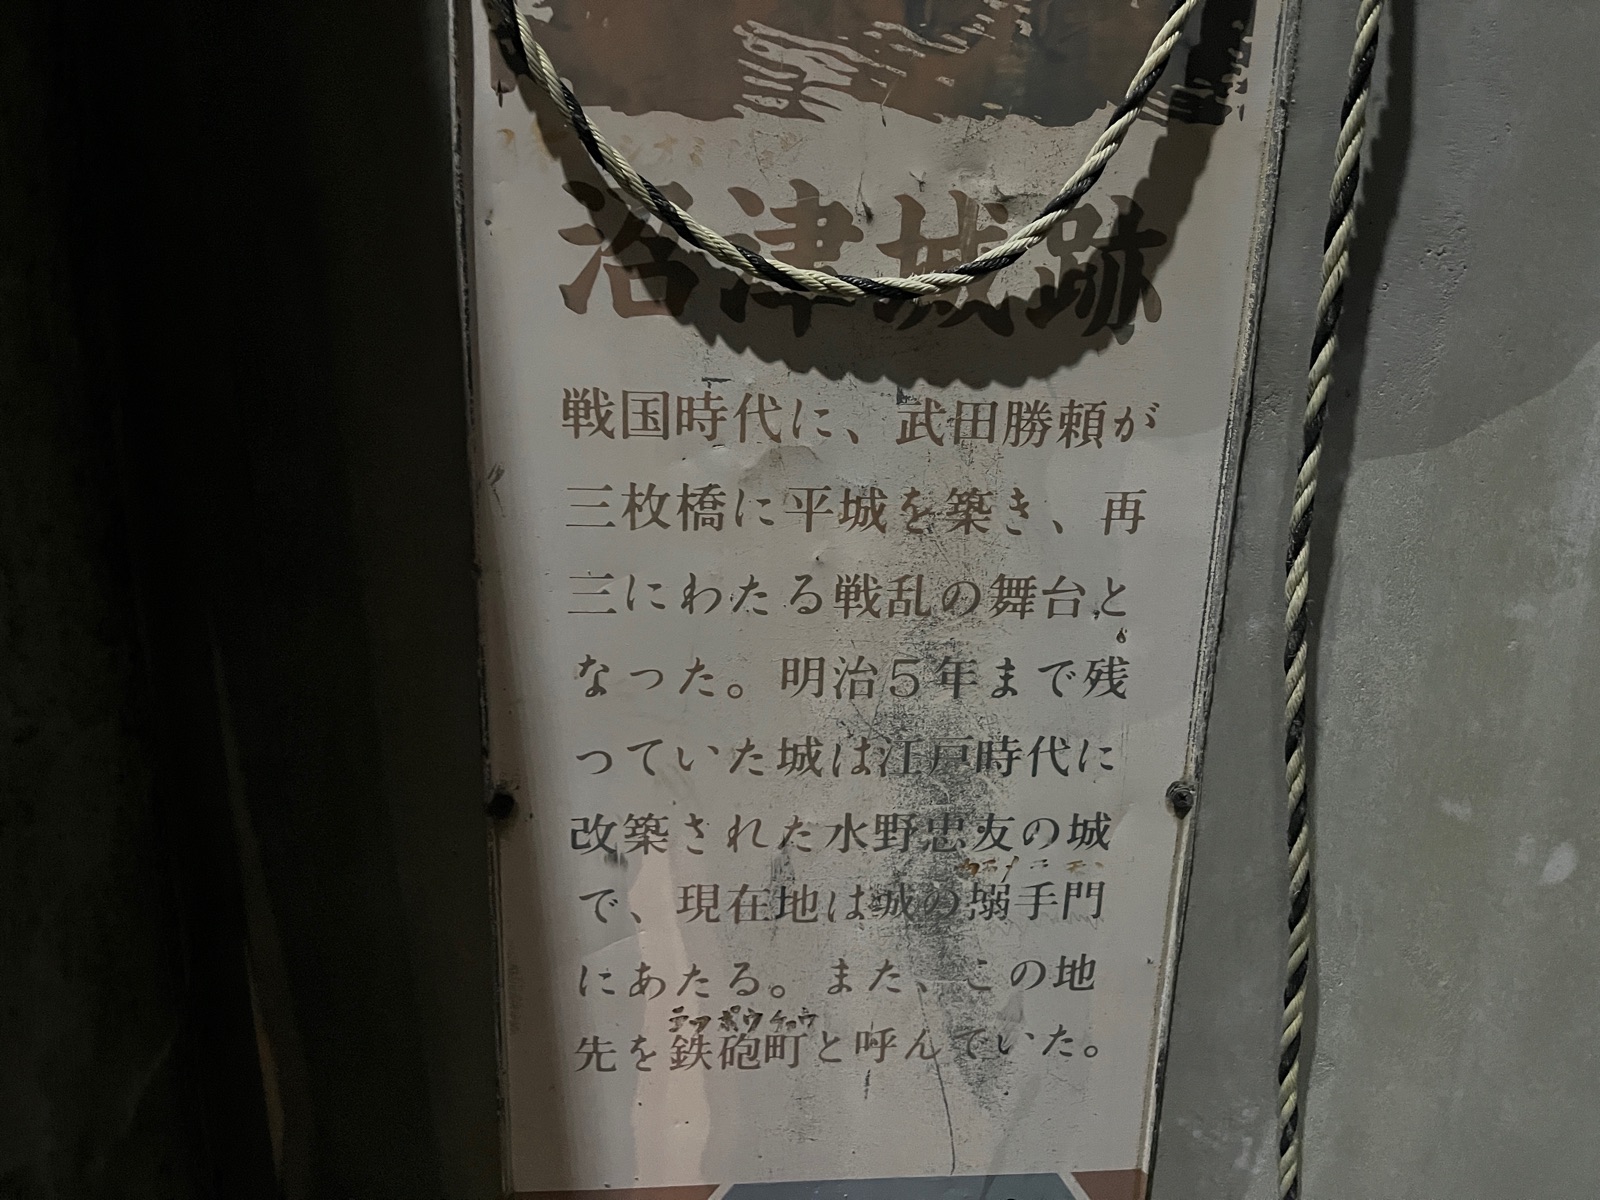 沼津城跡
戦国時代に、武田勝頼が
三枚橋に平城を築き、再
三にわたる戦乱の舞台と
なった。明治５年まで残
っていた城は江戸時代に
改築された水野忠友の城
で、現在地は城の搦手門
にあたる。また、この地
テッポウチョウ
先を鉄砲町と呼んでいた。